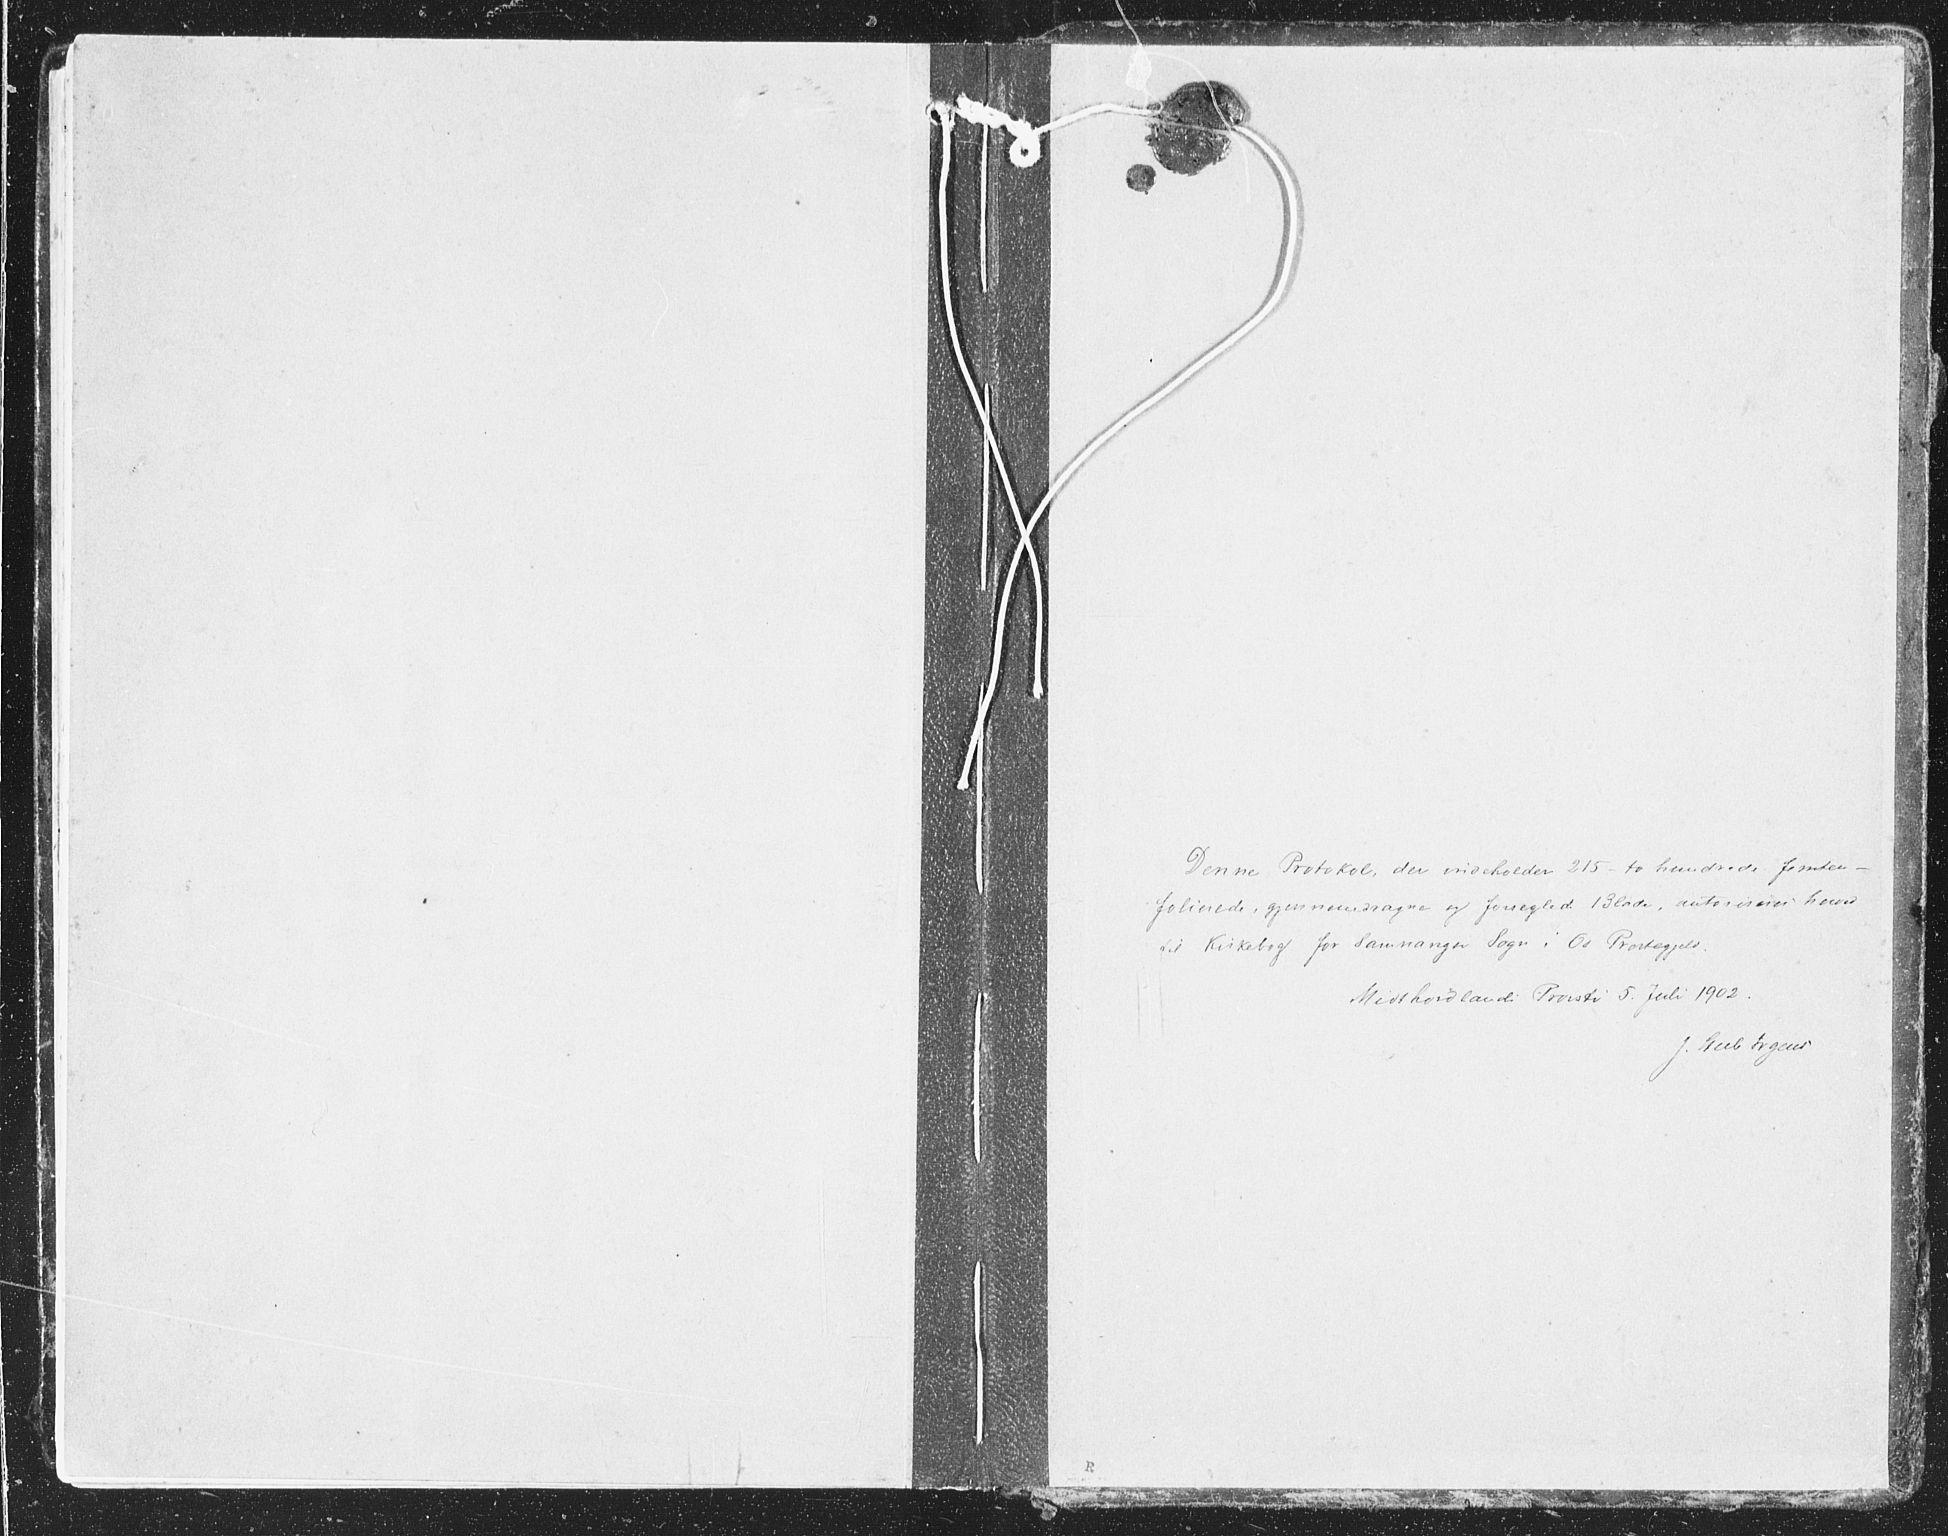 Denne Protokol, der indeholder 215 - to hundrede femten -
folierede, gjennemdragne og forseglede Blade, autoriseres herved
til Kirkebog for Samnanger Sogn i Os Præstegjeld.
Midthordlands Provsti 5. Juli 1902.
J. Irgens
R